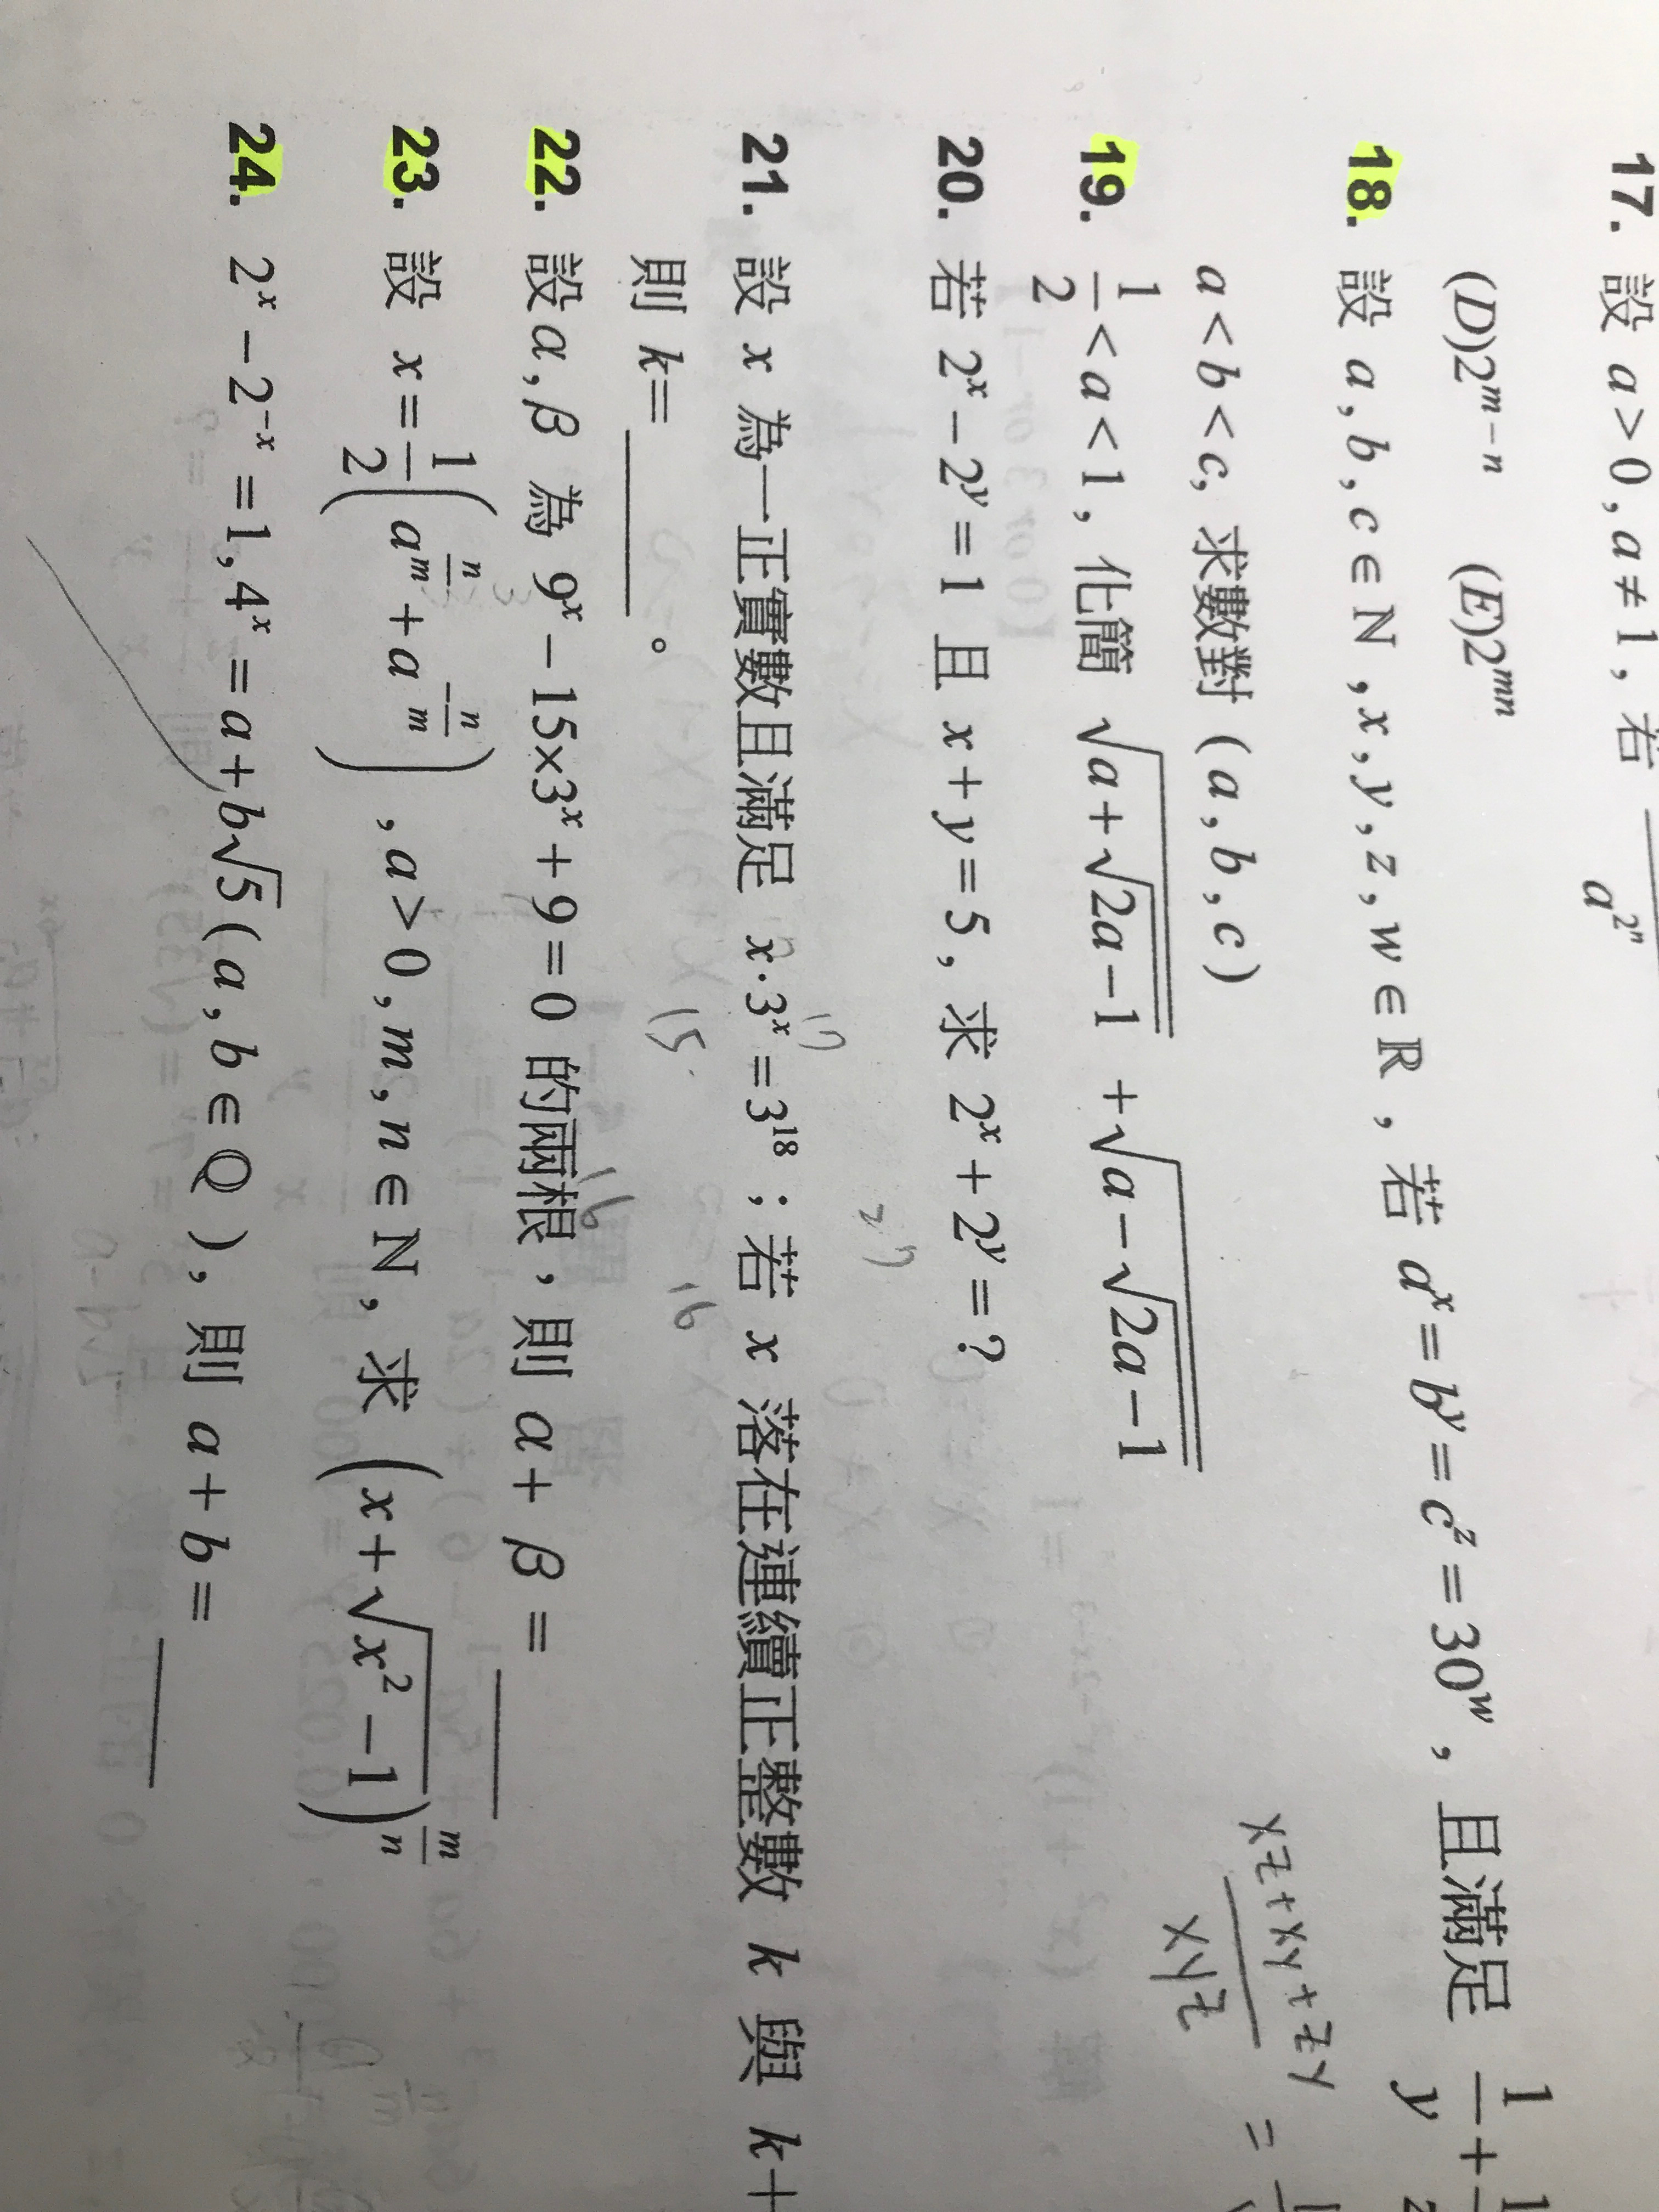 17. 設 a > 0 , a ≠ 1 , 若
a^{2^n}
(D)2^{m-n} (E)2^{mn}
18. 設 a , b , c ∈ ℕ , x , y , z , w ∈ ℝ , 若 a^x = b^y = c^z = 30^w , 且滿足 1/y + 1/z
a < b < c, 求數對 ( a , b , c )
(xz+xy+zy)/(xyz) =
19. 1/2 < a < 1 , 化簡 √(a+√(2a-1)) + √(a-√(2a-1))
20. 若 2^x - 2^y = 1 且 x + y = 5 , 求 2^x + 2^y = ?
17
21. 設 x 為一正實數且滿足 x·3^x = 3^{18} ; 若 x 落在連續正整數 k 與 k+
則 k= ______ 。
15
16
22. 設 α , β 為 9^x - 15×3^x + 9 = 0 的兩根 , 則 α + β = ______
16
23. 設 x = 1/2 ( a^{n/m} + a^{-n/m} ) , a > 0 , m , n ∈ ℕ , 求 ( x + √(x^2 - 1) )^{m/n}
24. 2^x - 2^{-x} = 1 , 4^x = a + b√5 ( a , b ∈ ℚ ) , 則 a + b = ______